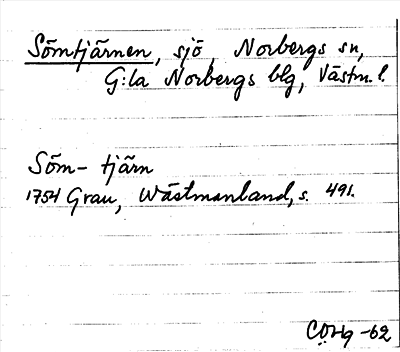 Sömtjärnen, sjö, Norbergs sn,
G:la Norbergs blg, Västm. l.
Söm- tjärn
1754 Grau, Wästmanland, s. 491.
-62